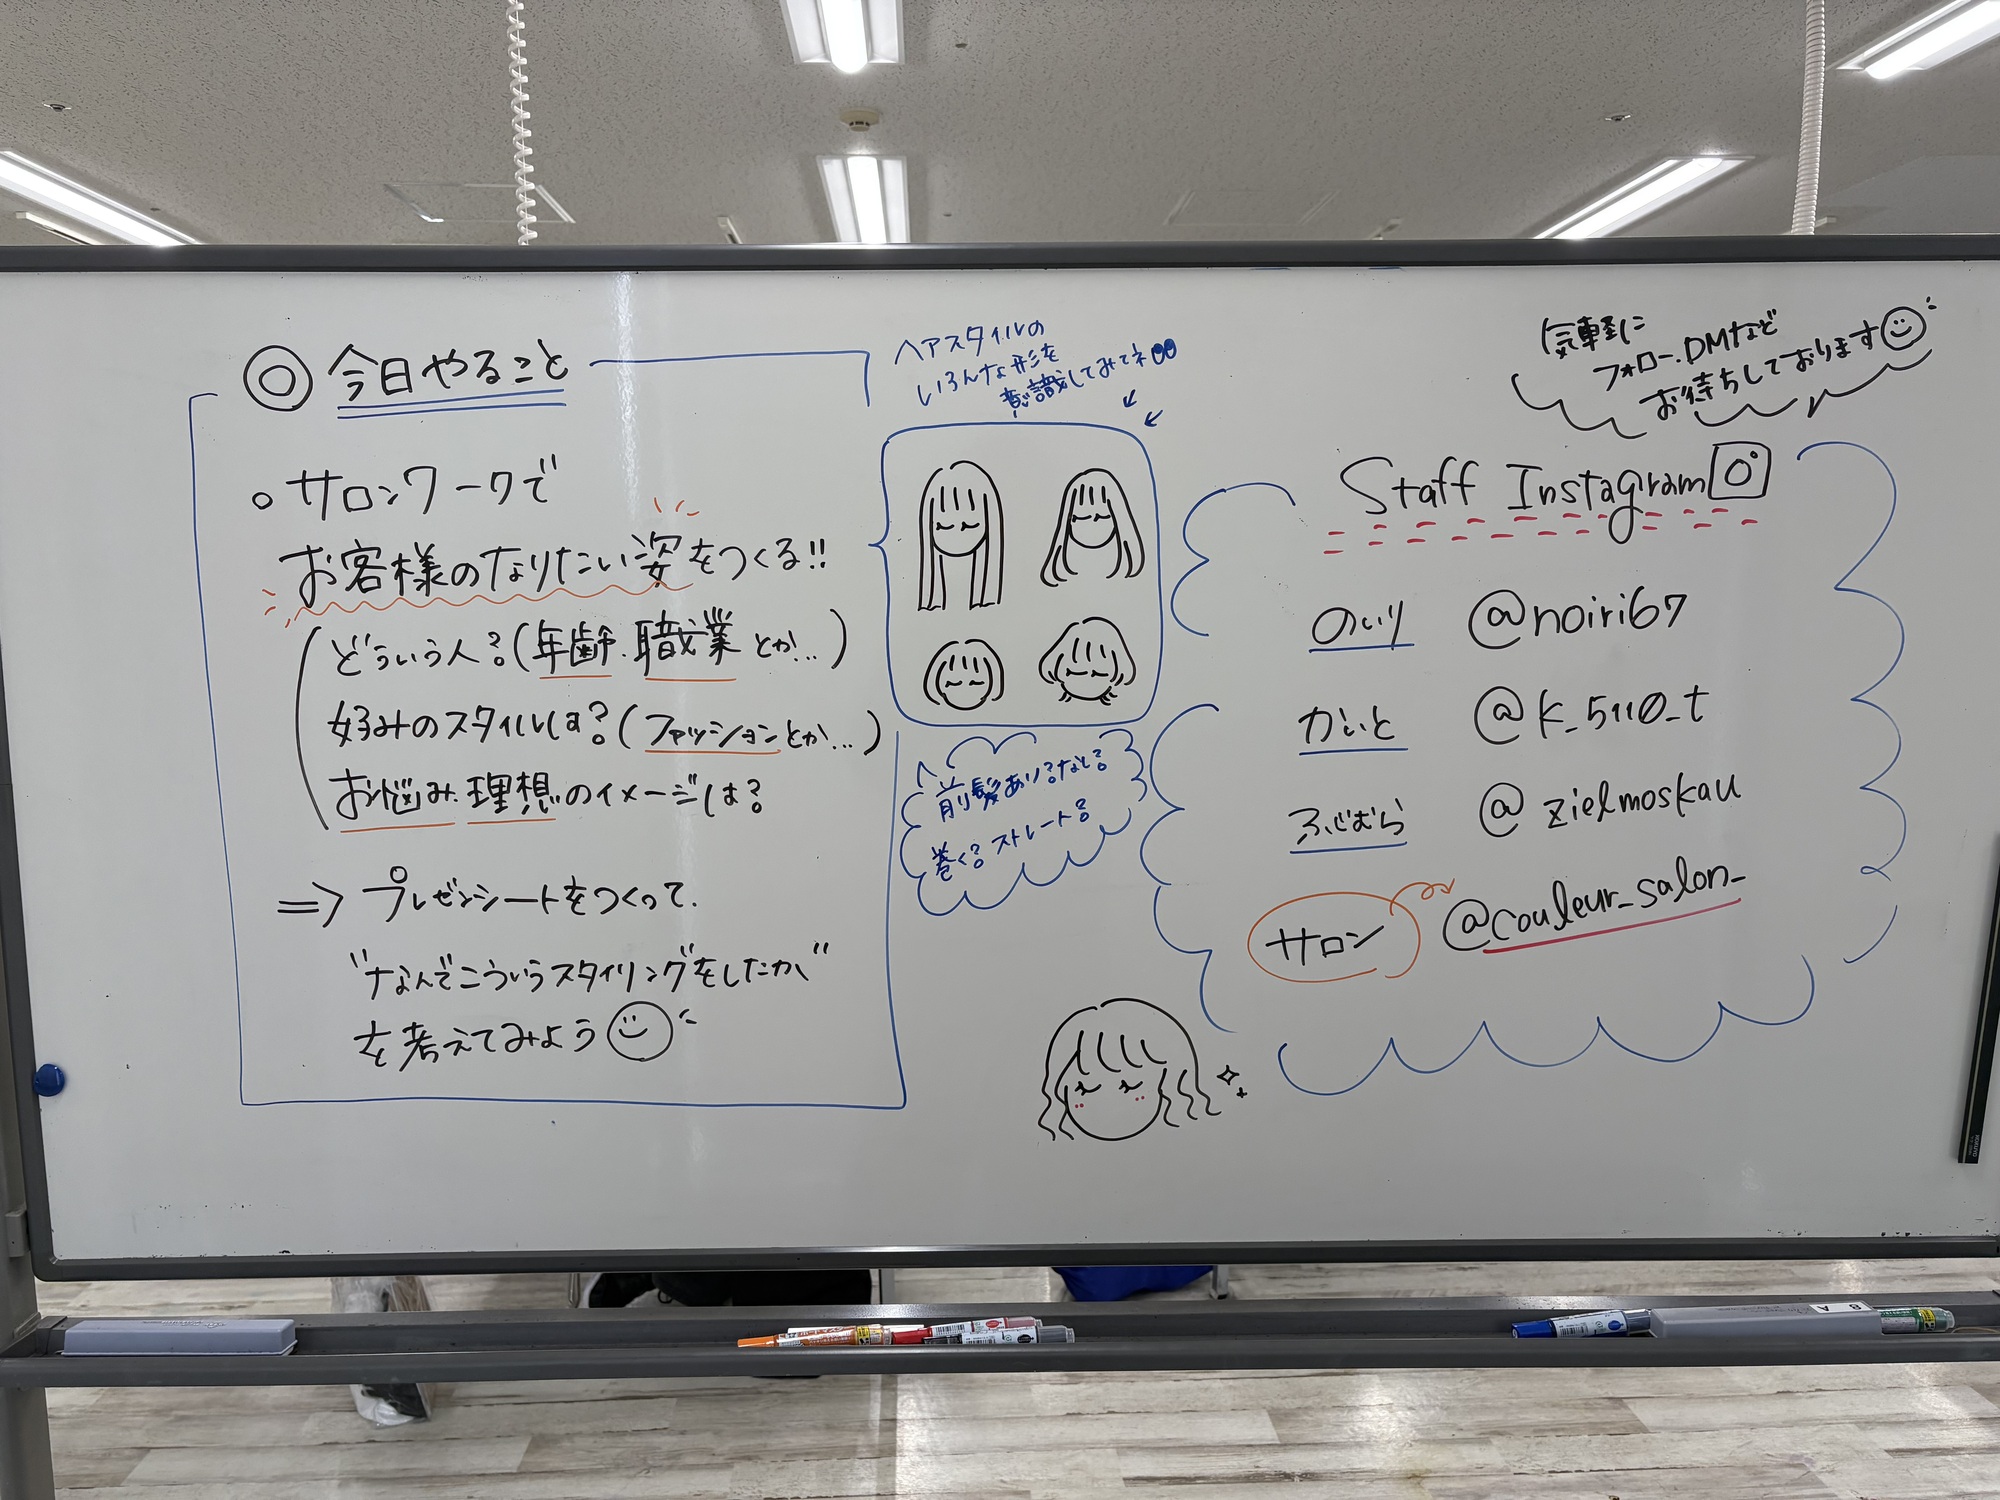 ◎ 今日やること
○ サロンワークで
お客様のなりたい姿をつくる!!
どういう人?(年齢・職業とか…)
好みのスタイルは?(ファッションとか…)
お悩み・理想のイメージは?
⇒ プレゼンシートをつくって、
"なんでこういうスタイリングをしたか"
を考えてみよう
ヘアスタイルの
いろんな形を
意識してみてネ
前髪あり?なし?
巻く?ストレート?
気軽に
フォロー・DMなど
お待ちしております
Staff Instagram
のいり @noiri67
かいと @k_5110_t
ふじむら @zielmoskau
サロン @couleur_salon_